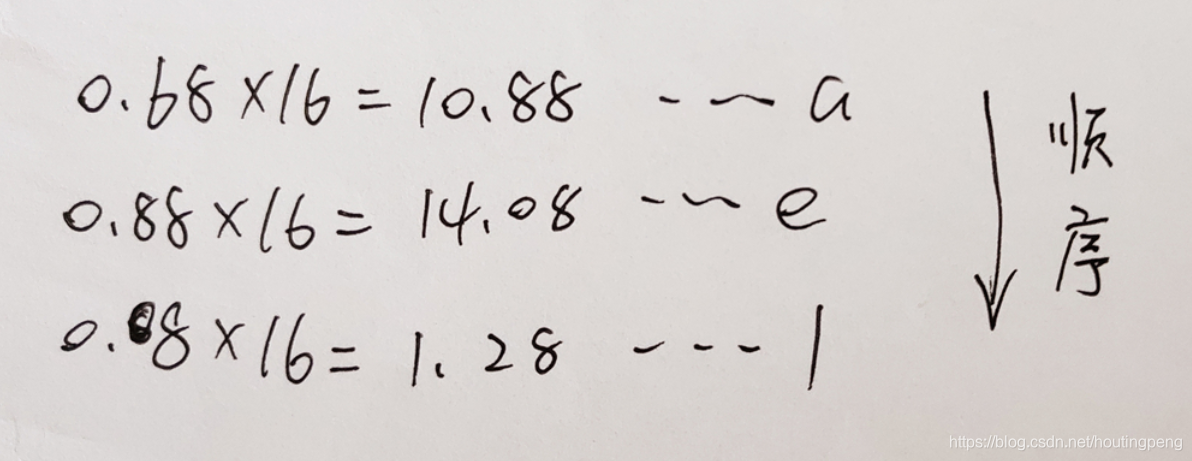 0.68×16=10.88 --- a
0.88×16=14.08 --- e
0.08×16=1.28 --- 1
顺序
https://blog.csdn.net/houtingpeng